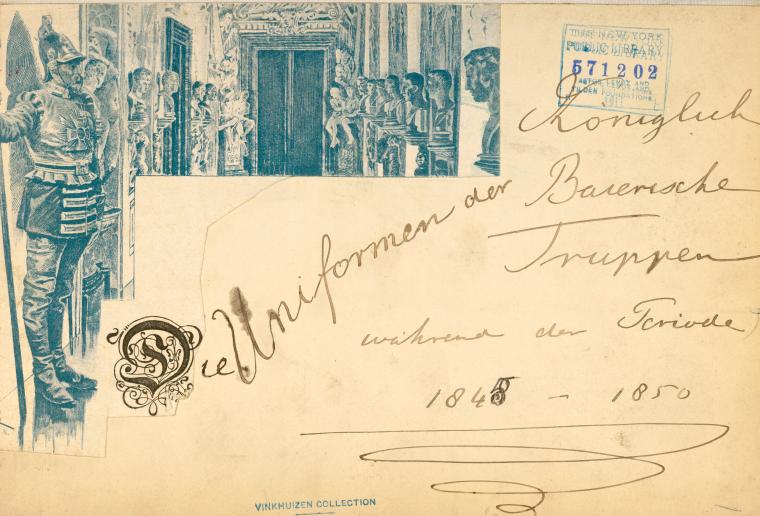 THE NEW YORK
PUBLIC LIBRARY
571202
ASTOR, LENOX AND
TILDEN FOUNDATIONS
Die Uniformen der Königlich
Baierische
Truppen
während der Periode
1845 - 1850
VINKHUIZEN COLLECTION